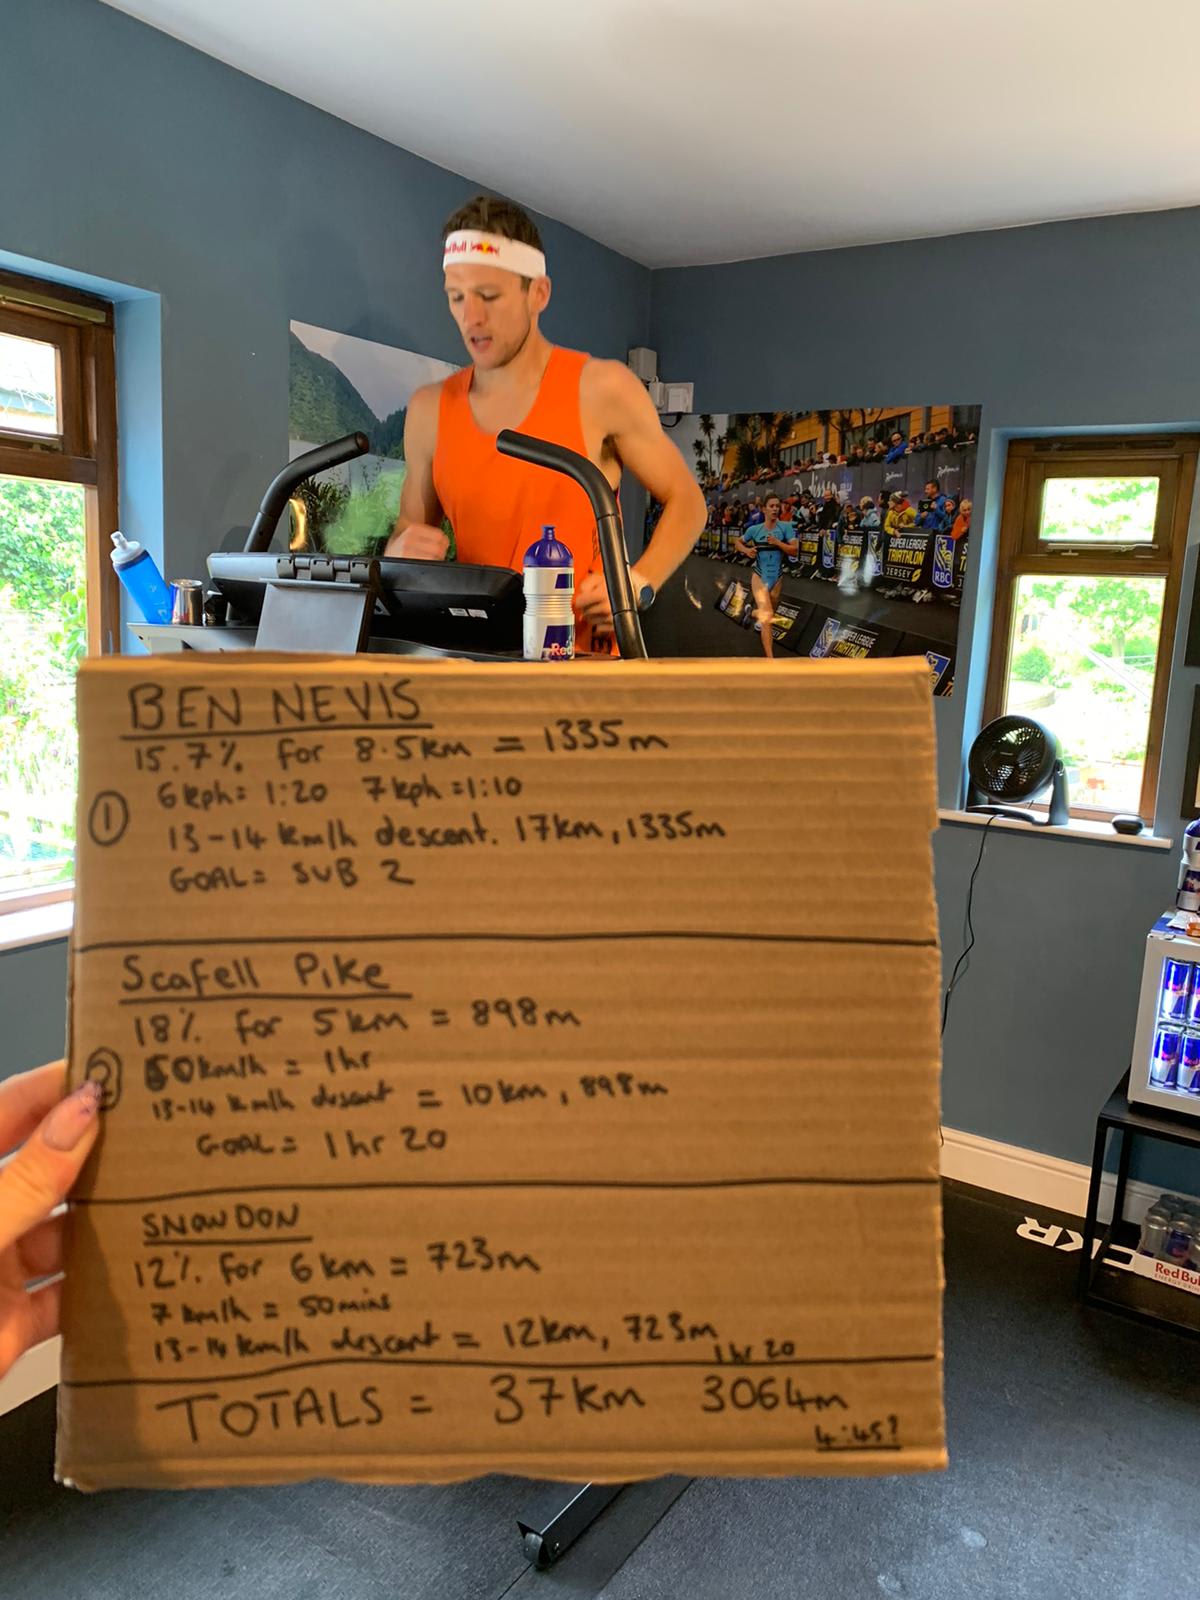 Red Bull
SUPER LEAGUE
TRIATHLON
JERSEY
RBC
SUPER LEAGUE
TRIATHLON
Red
BEN NEVIS
15.7% for 8.5km = 1335m
① 6kph = 1:20 7kph = 1:10
13-14 km/h descent. 17km, 1335m
GOAL = SUB 2
Scafell Pike
18% for 5km = 898m
② 50km/h = 1hr
13-14 km/h descent = 10km, 898m
GOAL = 1hr 20
SNOWDON
12% for 6km = 723m
7 km/h = 50mins
13-14 km/h descent = 12km, 723m
1hr 20
TOTALS = 37km 3064m
4:45?
Red Bull
ENERGY DRINK